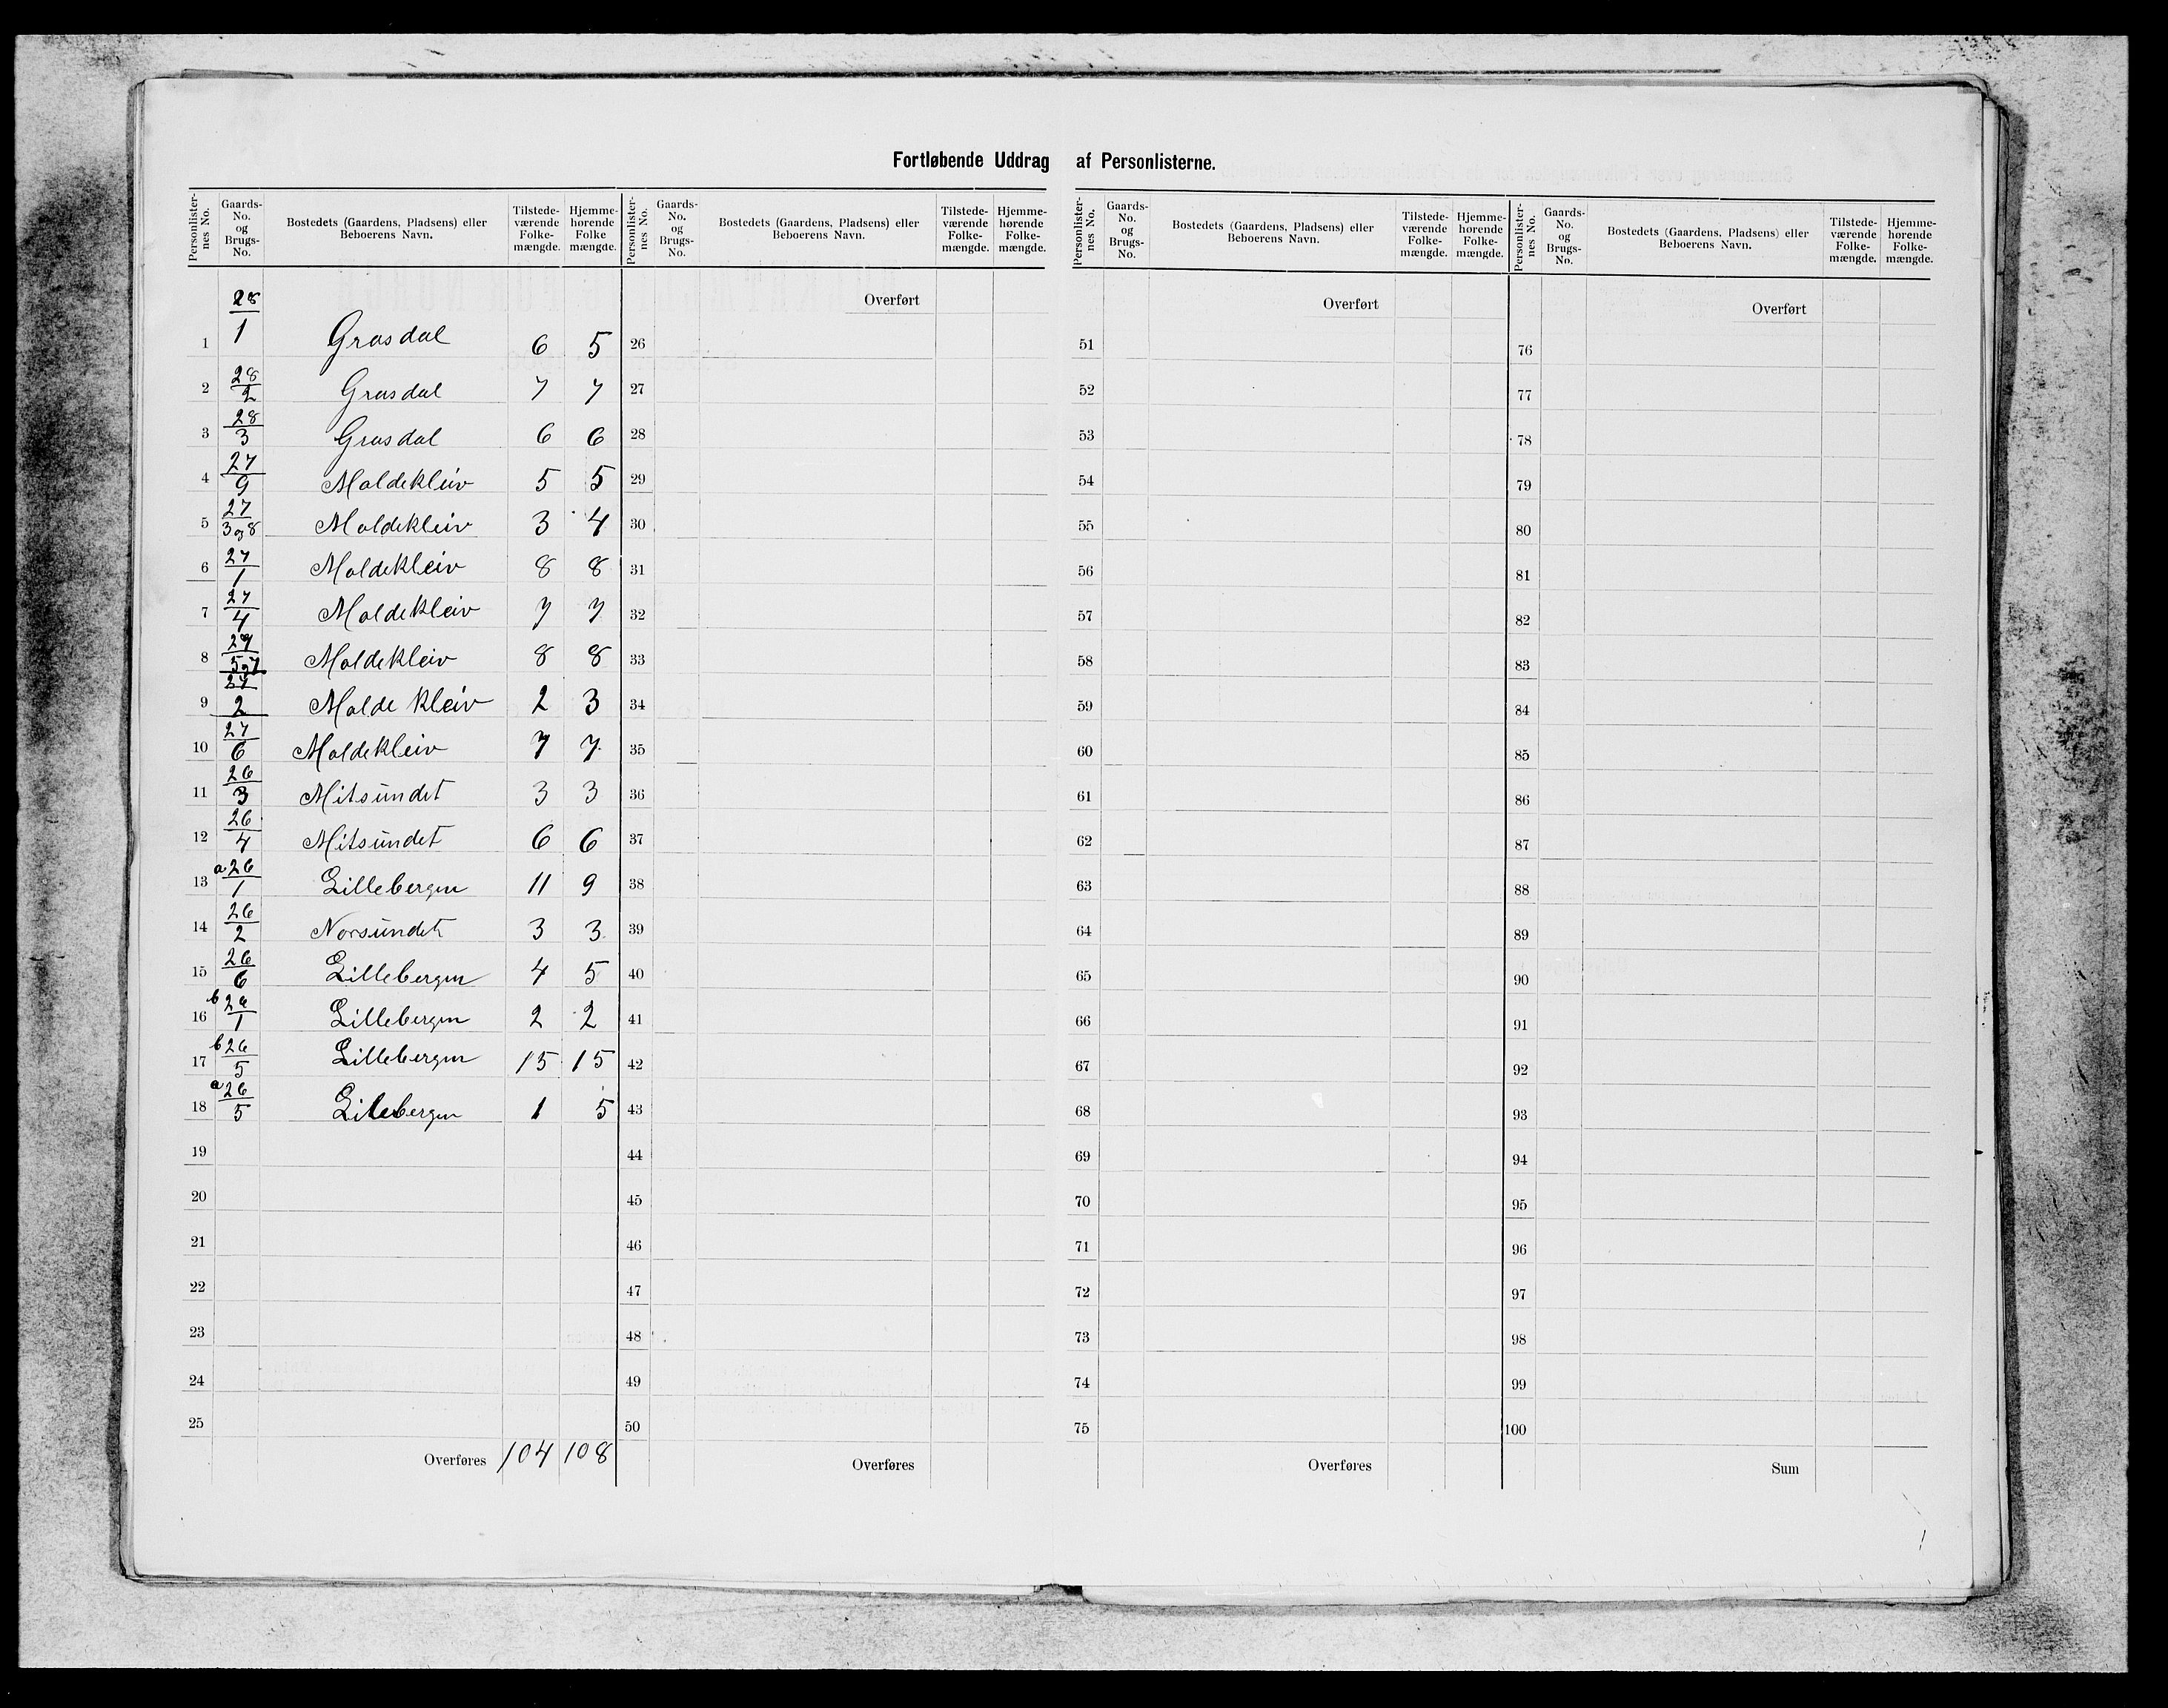 Fortløbende Uddrag af Personlisterne.
Personlisternes No. Gaards-No. og Brugs-No. Bostedets (Gaardens, Pladsens) eller Beboerens Navn. Tilstedeværende Folkemængde. Hjemmehørende Folkemængde.
Personlisternes No. Gaards-No. og Brugs-No. Bostedets (Gaardens, Pladsens) eller Beboerens Navn. Tilstedeværende Folkemængde. Hjemmehørende Folkemængde.
Personlisternes No. Gaards-No. og Brugs-No. Bostedets (Gaardens, Pladsens) eller Beboerens Navn. Tilstedeværende Folkemængde. Hjemmehørende Folkemængde.
Personlisternes No. Gaards-No. og Brugs-No. Bostedets (Gaardens, Pladsens) eller Beboerens Navn. Tilstedeværende Folkemængde. Hjemmehørende Folkemængde.
1 28/1 Grasdal 6 5
2 28/2 Grasdal 7 7
3 28/3 Grasdal 6 6
4 27/9 Moldekleiv 5 5
5 27/3 og 8 Moldekleiv 3 4
6 27/1 Moldekleiv 8 8
7 27/4 Moldekleiv 7 7
8 27/5 og 7 Moldekleiv 8 8
9 27/2 Molde kleiv 2 3
10 27/6 Moldekleiv 7 7
11 26/3 Mitsundet 3 3
12 26/4 Mitsundet 6 6
13 a 26/1 Lillebergen 11 9
14 26/2 Norsundet 3 3
15 26/6 Lillebergen 4 5
16 b 26/1 Lillebergen 2 2
17 b 26/5 Lillebergen 15 15
18 a 26/5 Lilebergen 1 5
19
20
21
22
23
24
25
Overføres 104 108
Overført
26
27
28
29
30
31
32
33
34
35
36
37
38
39
40
41
42
43
44
45
46
47
48
49
50
Overføres
Overført
51
52
53
54
55
56
57
58
59
60
61
62
63
64
65
66
67
68
69
70
71
72
73
74
75
Overføres
Overført
76
77
78
79
80
81
82
83
84
85
86
87
88
89
90
91
92
93
94
95
96
97
98
99
100
Sum